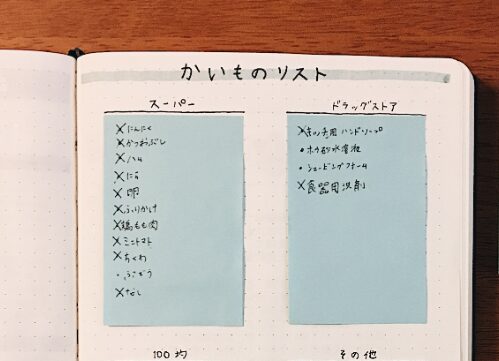 かいものリスト
スーパー
×にんにく
×かつおぶし
×ハム
×にら
×卵
×ふりかけ
×鶏もも肉
×ミニトマト
×ちくわ
×なし
ドラッグストア
ハンドソープ
・ホウ砂水溶液
・シェービングフォーム
×食器用洗剤
100均
その他